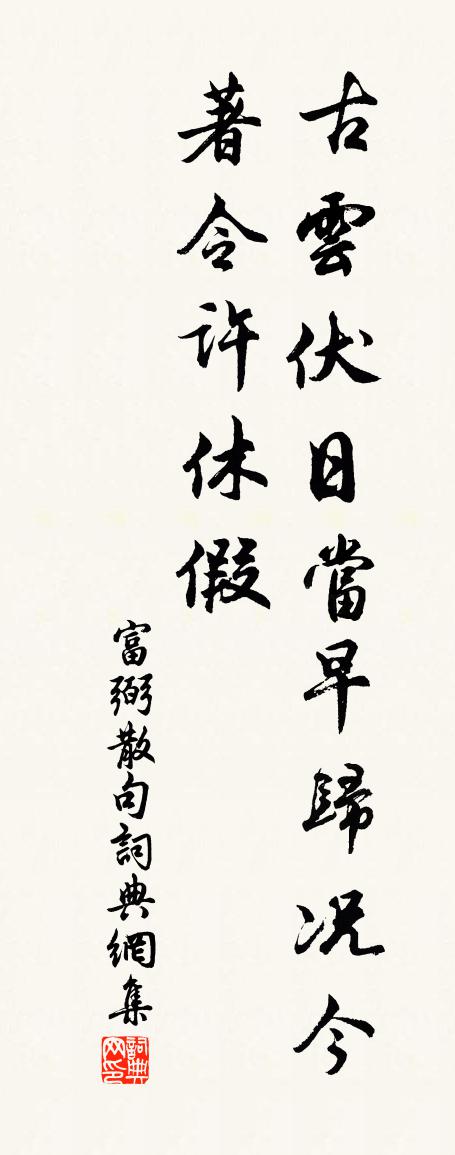 古雲伏日當早歸况今
著令許休假
富弼散句詞典網集
詞典网印